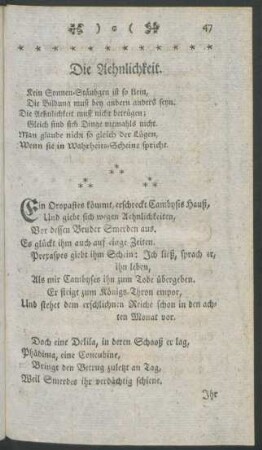 ) o (
47
Die Aehnlichkeit.
Kein Sonnen-Stäubgen ist so klein,
Die Bildung muß bey andern anders seyn.
Die Aehnlichkeit muß nicht betrügen;
Gleich sind sich Dinge niemahls nicht.
Man glaube nicht so gleich der Lügen,
Wenn sie in Wahrheits-Scheine spricht.
Ein Oropastes kömmt, erschreckt Cambyses Hauß,
Und giebt sich wegen Aehnlichkeiten,
Vor dessen Bruder Smerden aus.
Es glückt ihm auch auf einge Zeiten.
Prexaspes giebt ihm Schein: Ich ließ, sprach er,
ihn leben,
Als mir Cambyses ihn zum Tode übergeben.
Er steigt zum Königs-Thron empor,
Und stehet dem erschlichnen Reiche schon in den ach-
ten Monat vor.
Doch eine Delila, in deren Schooß er lag,
Phädima, eine Concubine,
Bringt den Betrug zuletzt an Tag,
Weil Smerdes ihr verdächtig schiene.
Ihr